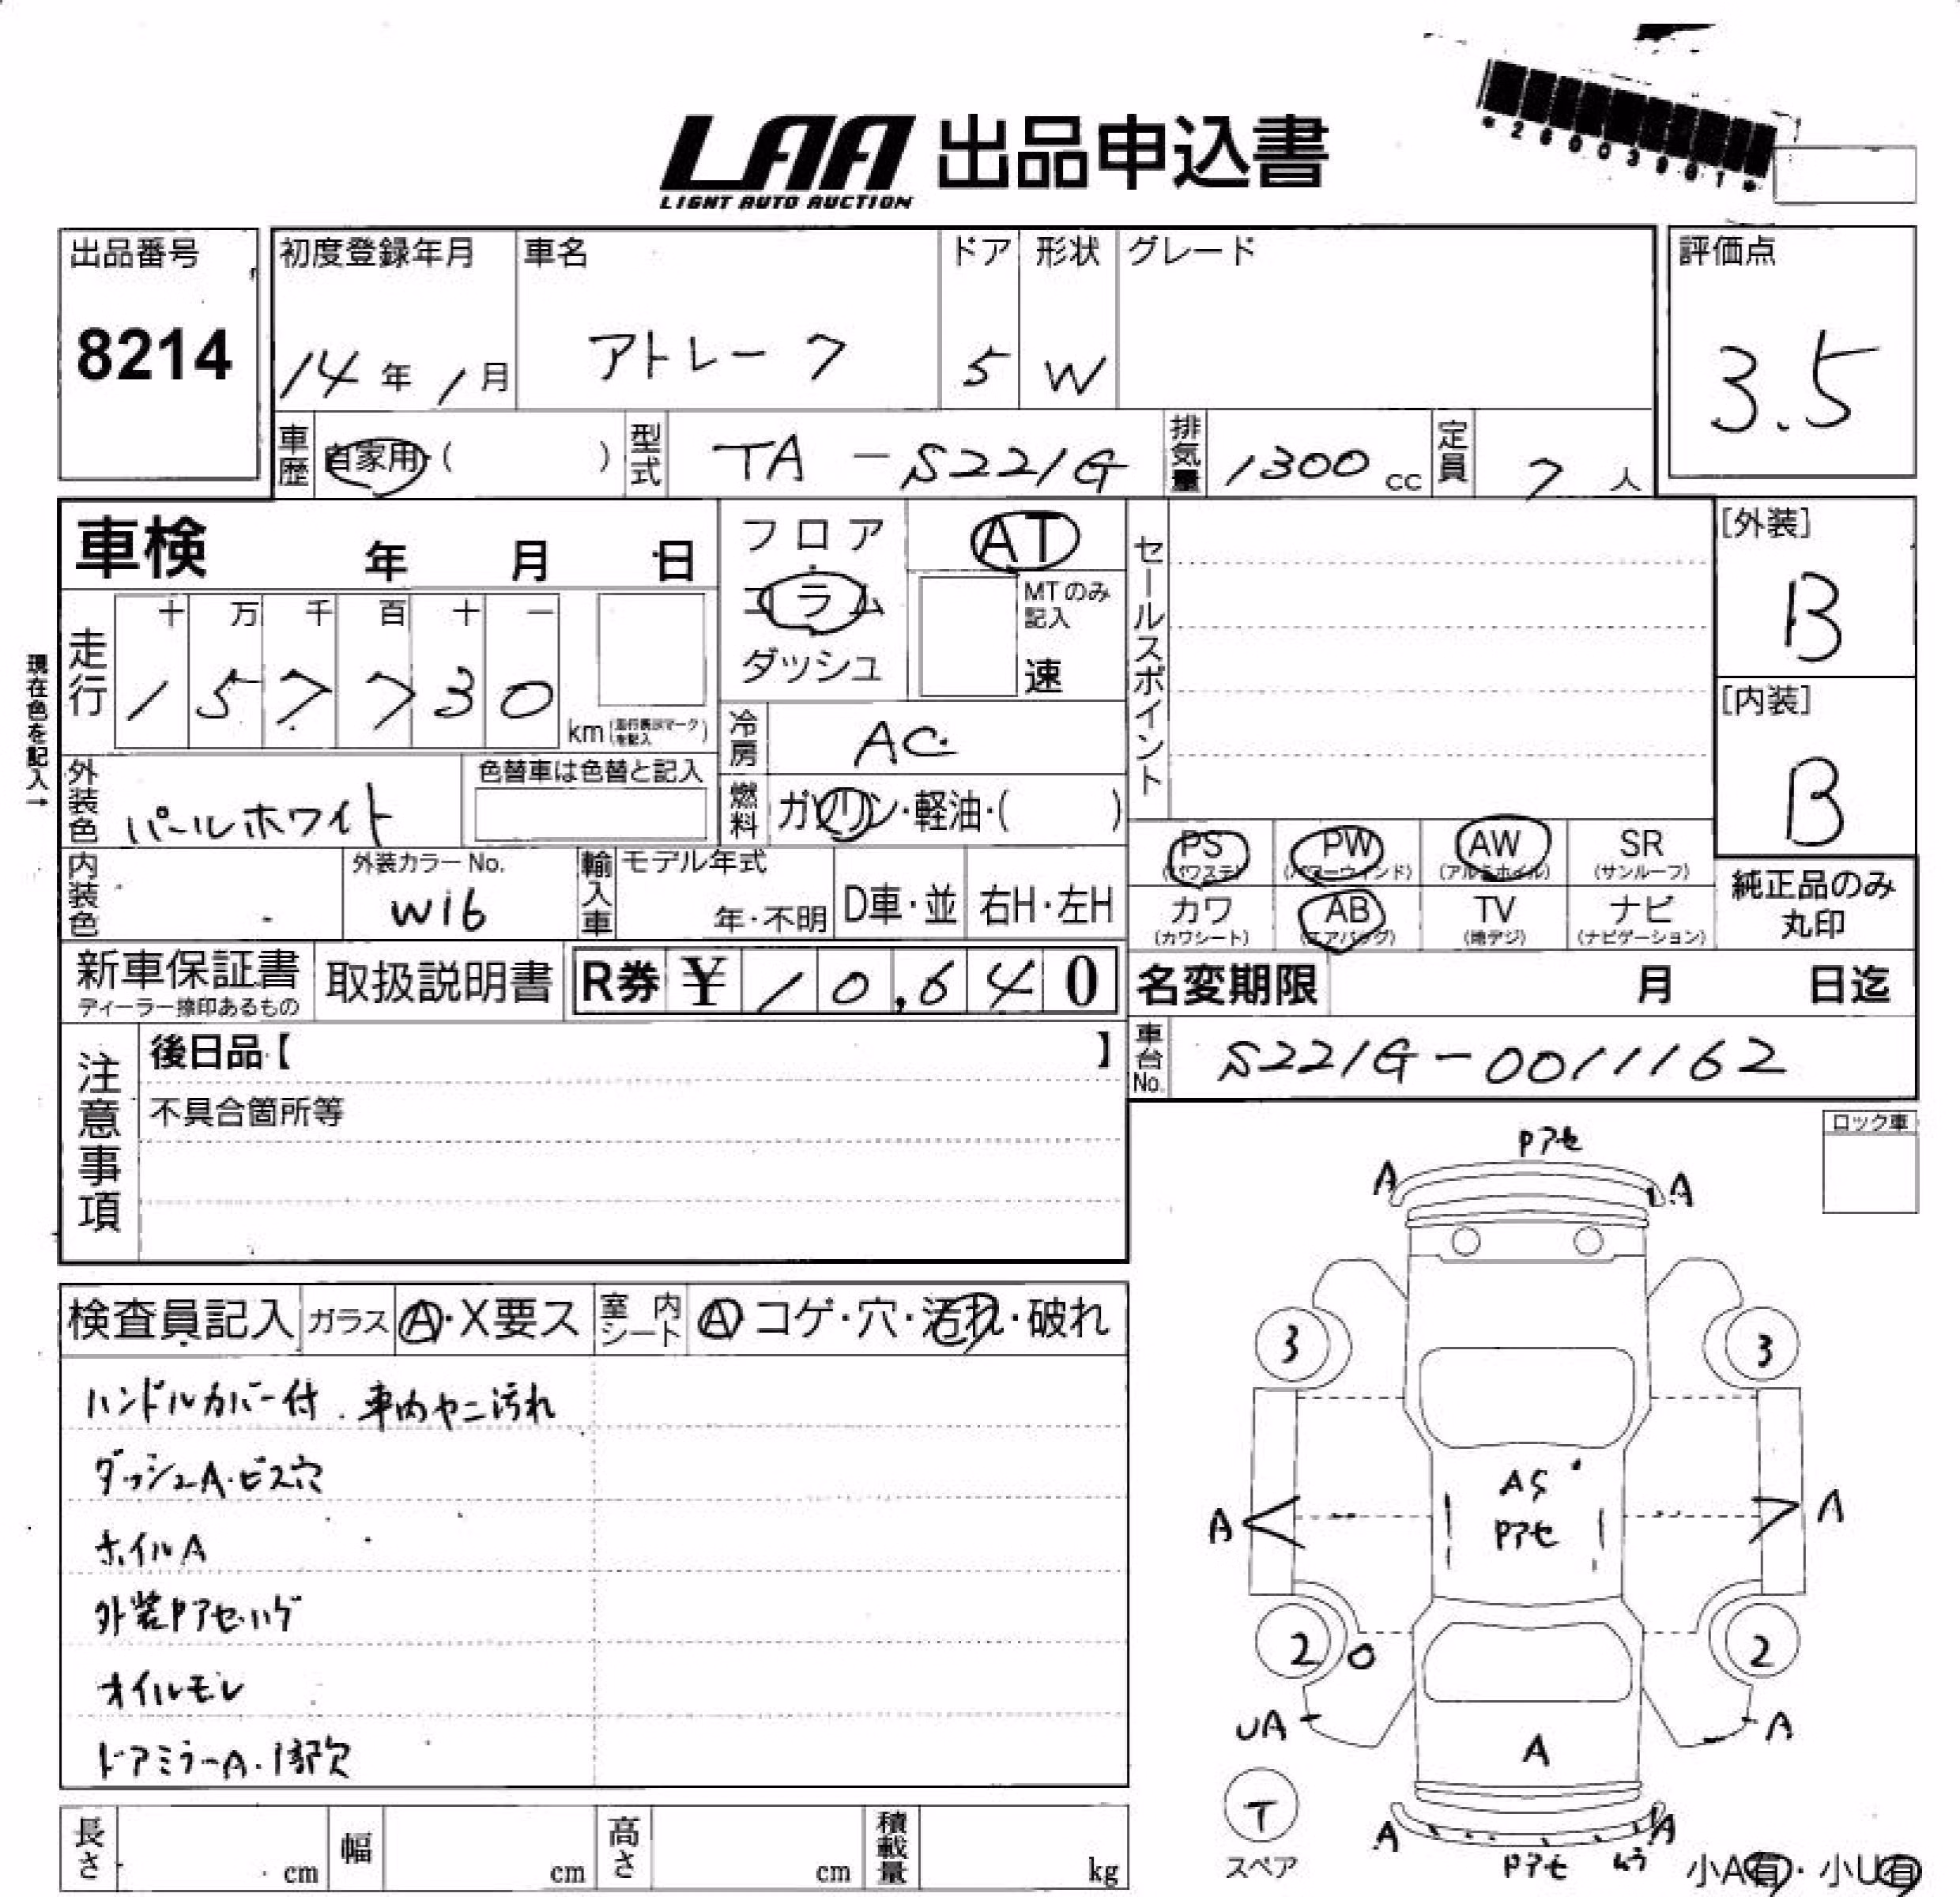 *26003901*
LAA 出品申込書
LIGHT AUTO AUCTION
出品番号
8214
初度登録年月
14年 1月
車名
アトレー7
ドア
5
形状
W
グレード
評価点
3.5
車歴 自家用・( )
型式 TA-S221G
排気量 1300 cc
定員 7 人
車検 年 月 日
フロア
コラム
ダッシュ
AT
MTのみ
記入
速
セールスポイント
[外装]
B
[内装]
B
現在色を記入→
走行
十 万 千 百 十 一
1 5 7 7 3 0
km (走行表示マークを記入)
冷房 AC
燃料 ガソリン・軽油・( )
外装色 パールホワイト
色替車は色替と記入
PS (パワステ)
PW (パワーウィンド)
AW (アルミホイル)
SR (サンルーフ)
カワ (カワシート)
AB (エアバッグ)
TV (地デジ)
ナビ (ナビゲーション)
純正品のみ
丸印
内装色
外装カラーNo.
W16
輸入車
モデル年式
年・不明
D車・並
右H・左H
新車保証書
ディーラー捺印あるもの
取扱説明書
R券 ¥ 10,640
名変期限 月 日迄
車台No. S221G-0011162
注意事項
後日品【 】
不具合箇所等
ロック車
検査員記入
ガラス Ⓐ・X要ス
室内シート Ⓐコゲ・穴・汚れ・破れ
ハンドルカバー付. 車内ヤニ汚れ
ダッシュA・ビス穴
ホイルA
外装Pアセ・ハゲ
オイルモレ
ドアミラーA・1部欠
Pアセ
A A
3 3
AS
Pアセ
A A
2 2
O
UA A
A
T
スペア
A A
Pアセ ムラ
小A有・小U有
長さ cm
幅 cm
高さ cm
積載量 kg